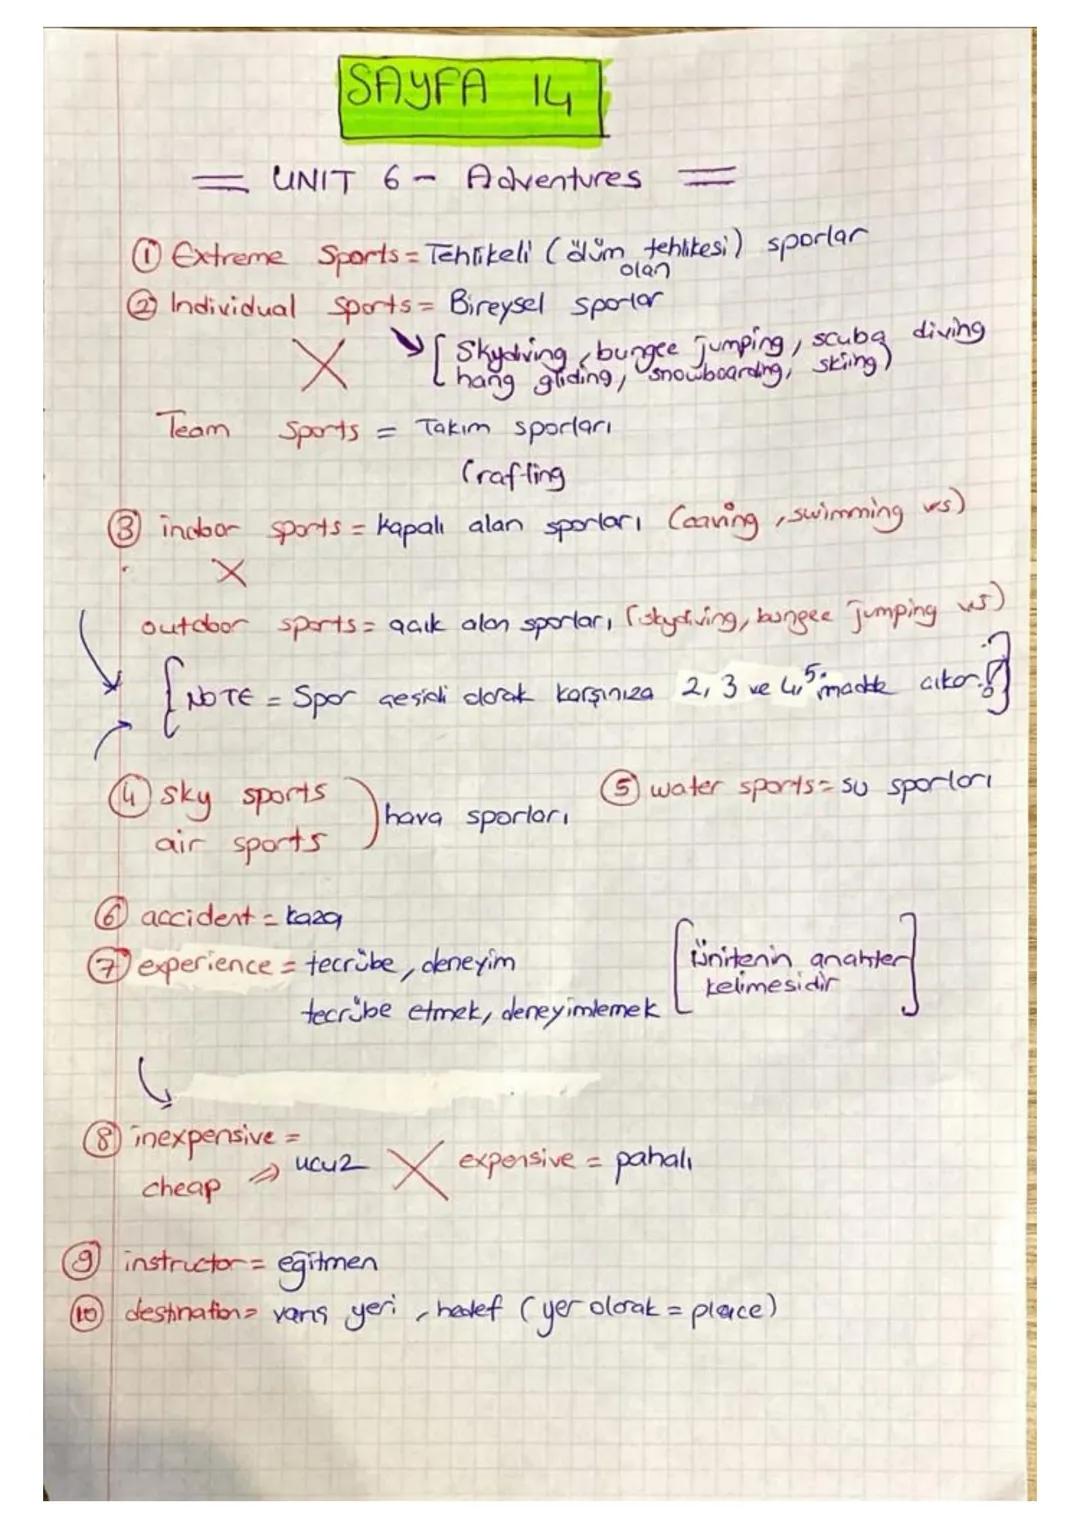 SAYFA 14
= UNIT 6 - Adventures =
① Extreme Sports = Tehlikeli (ölüm tehlikesi) sporlar
olan
② Individual sports = Bireysel sporlar
X [Skydiving, bungee jumping, scuba diving
hang gliding, snowboarding, skiing)
Team Sports = Takım sporları
(rafting
③ indoor sports = kapalı alan sporları (caving, swimming vs)
X
outdoor sports = açık alan sporları (skydiving, bungee jumping vs)
[NOTE = Spor çeşidi olarak karşınıza 2, 3 ve 4, 5. madde çıkar.]
④ sky sports
air sports ) hava sporları
⑤ water sports = su sporları
⑥ accident = kaza
⑦ experience = tecrübe, deneyim
tecrübe etmek, deneyimlemek
[Ünitenin anahter
kelimesidir]
⑧ inexpensive =
cheap => ucuz X expensive = pahalı
⑨ instructor = eğitmen
⑩ destination = varış yeri, hedef (yer olarak = place)